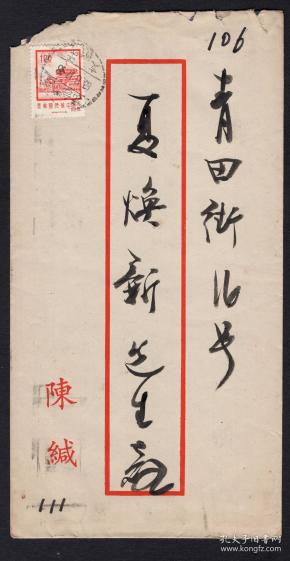 106
青田街16号
夏焕新先生啟
陳緘
111
孔夫子旧书网